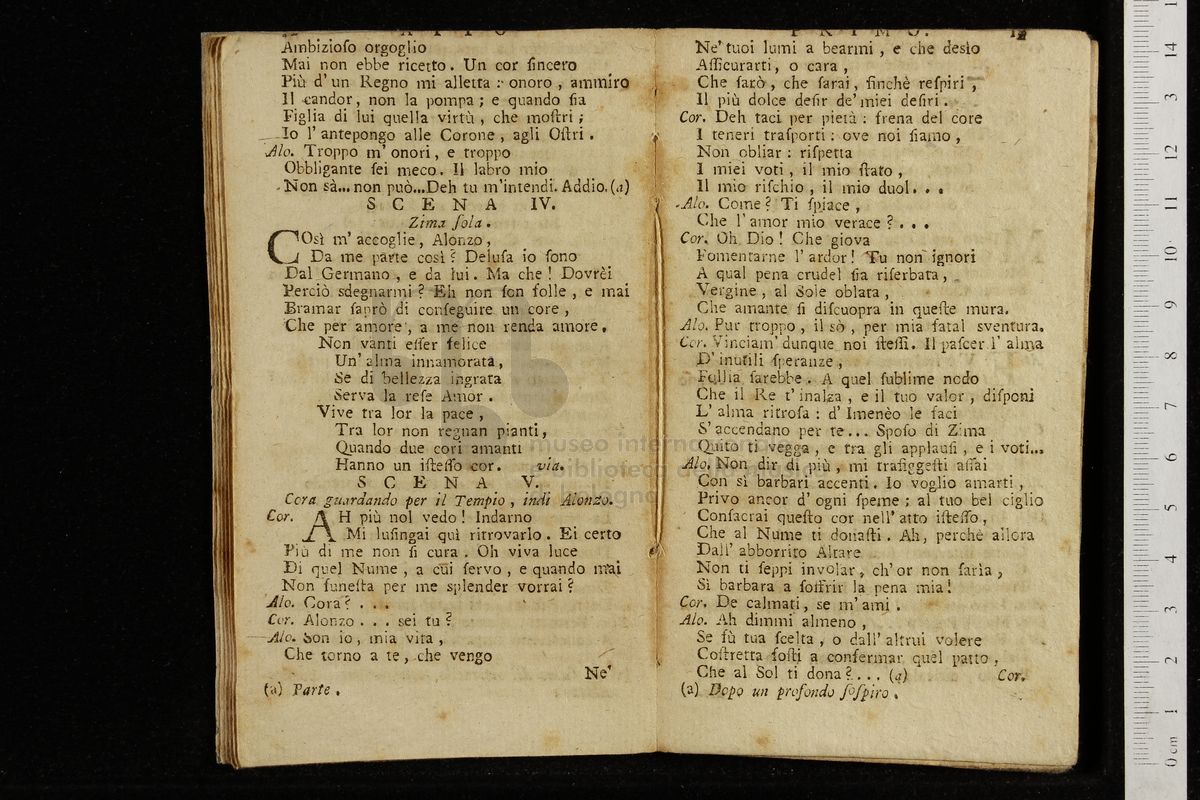 Ambizioſo orgoglio
Mai non ebbe ricetto. Un cor ſincero
Più d'un Regno mi alletta: onoro, ammiro
Il candor, non la pompa; e quando ſia
Figlia di lui quella virtù, che moſtri;
Io l'antepongo alle Corone, agli Oſtri.
Alo. Troppo m'onori, e troppo
Obbligante ſei meco. Il labro mio
Non sà... non può...Deh tu m'intendi. Addio. (a)
SCENA IV.
Zima ſola.
COsì m'accoglie, Alonzo,
Da me parte così? Deluſa io ſono
Dal Germano, e da lui. Ma che! Dovrèi
Perciò sdegnarmi? Eh non ſon folle, e mai
Bramar ſaprò di conſeguire un core,
Che per amore, a me non renda amore.
Non vanti eſſer felice
Un'alma innamorata,
Se di bellezza ingrata
Serva la reſe Amor.
Vive tra lor la pace,
Tra lor non regnan pianti,
Quando due cori amanti
Hanno un iſteſſo cor. via.
SCENA V.
Cora guardando per il Tempio, indi Alonzo.
Cor. AH più nol vedo! Indarno
Mi luſingai quì ritrovarlo. Ei certo
Più di me non ſi cura. Oh viva luce
Di quel Nume, a cui ſervo, e quando mai
Non funeſta per me splender vorrai?
Alo. Cora? . . .
Cor. Alonzo . . . sei tu?
Alo. Son io, mia vita,
Che torno a te, che vengo
Ne'
(a) Parte.
PRIMO.
Ne' tuoi lumi a bearmi, e che desìo
Aſſicurarti, o cara,
Che ſarò, che ſarai, finchè reſpiri,
Il più dolce deſir de' miei deſiri.
Cor. Deh taci per pietà: frena del core
I teneri traſporti: ove noi ſiamo,
Non obliar: riſpetta
I miei voti, il mio ſtato,
Il mio riſchio, il mio duol. . .
Alo. Come? Ti ſpiace,
Che l'amor mio verace? . . .
Cor. Oh Dio! Che giova
Fomentarne l'ardor! Tu non ignori
A qual pena crudel ſia riſerbata,
Vergine, al Sole oblata,
Che amante ſi diſcuopra in queſte mura.
Alo. Pur troppo, il sò, per mia fatal sventura.
Cor. Vinciam' dunque noi ſteſſi. Il paſcer l'alma
D'inutili ſperanze,
Follìa ſarebbe. A quel ſublime nodo
Che il Re t'inalza, e il tuo valor, diſponi
L'alma ritroſa: d'Imenèo le faci
S'accendano per te... Spoſo di Zima
Quito ti vegga, e tra gli applauſi, e i voti...
Alo. Non dir di più, mi trafiggeſti aſſai
Con sì barbari accenti. Io voglio amarti,
Privo ancor d'ogni ſpeme; al tuo bel ciglio
Conſacrai queſto cor nell'atto iſteſſo,
Che al Nume ti donaſti. Ah, perchè allora
Dall'abborrito Altare
Non ti ſeppi involar, ch'or non ſarìa,
Sì barbara a ſoffrir la pena mia!
Cor. De calmati, se m'ami.
Alo. Ah dimmi almeno,
Se fù tua ſcelta, o dall'altrui volere
Coſtretta foſti a confermar quel patto,
Che al Sol ti dona? . . . (a)
Cor.
(a) Dopo un profondo ſoſpiro.
museo internazionale
e biblioteca della musica
di bologna